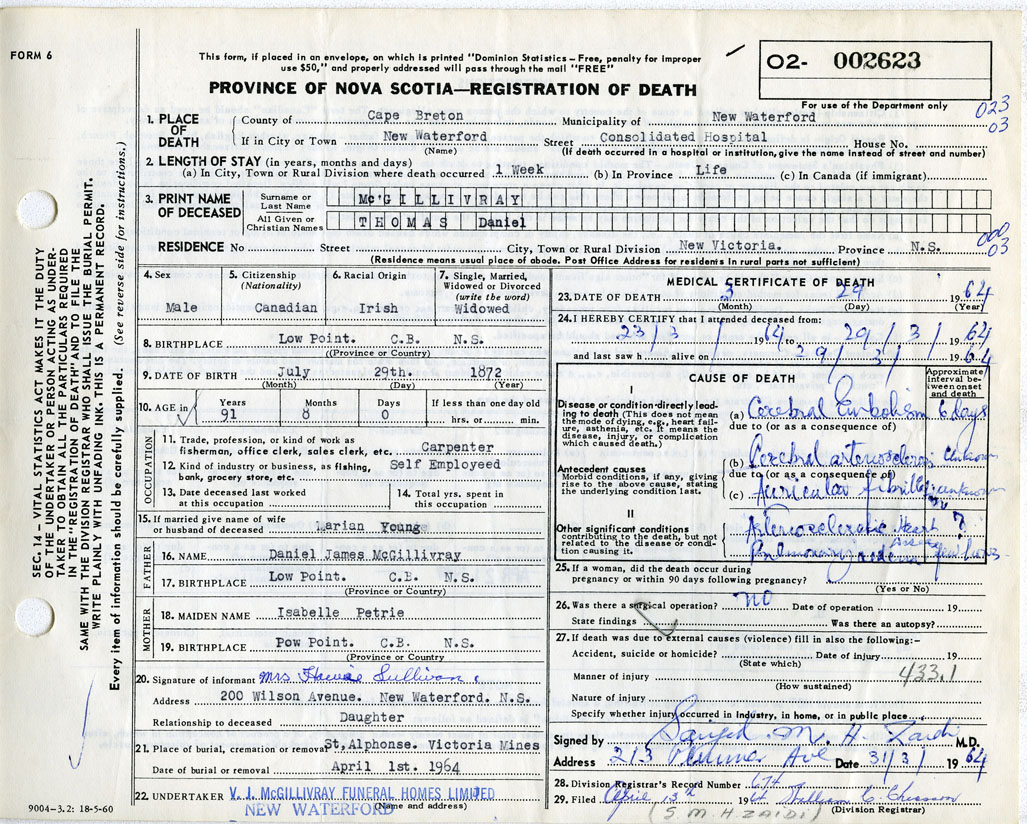 FORM 6
This form, if placed in an envelope, on which is printed "Dominion Statistics – Free, penalty for improper
use $50," and properly addressed will pass through the mail "FREE"
02- 002623
For use of the Department only
023
03
PROVINCE OF NOVA SCOTIA—REGISTRATION OF DEATH
1. PLACE OF DEATH
County of Cape Breton Municipality of New Waterford
If in City or Town New Waterford Street Consolidated Hospital House No.
(Name) (If death occurred in a hospital or institution, give the name instead of street and number)
2. LENGTH OF STAY (in years, months and days)
(a) In City, Town or Rural Division where death occurred 1 Week (b) In Province Life (c) In Canada (if immigrant)
3. PRINT NAME OF DECEASED
Surname or Last Name McGILLIVRAY
All Given or Christian Names THOMAS Daniel
000
03
RESIDENCE No Street City, Town or Rural Division New Victoria. Province N.S.
(Residence means usual place of abode. Post Office Address for residents in rural parts not sufficient)
SEC. 14 – VITAL STATISTICS ACT MAKES IT THE DUTY
OF THE UNDERTAKER OR PERSON ACTING AS UNDER-
TAKER TO OBTAIN ALL THE PARTICULARS REQUIRED
IN THE "REGISTRATION OF DEATH" AND TO FILE THE
SAME WITH THE DIVISION REGISTRAR WHO SHALL ISSUE THE BURIAL PERMIT.
WRITE PLAINLY WITH UNFADING INK. THIS IS A PERMANENT RECORD.
Every item of information should be carefully supplied. (See reverse side for instructions.)
4. Sex
Male
5. Citizenship
(Nationality)
Canadian
6. Racial Origin
Irish
7. Single, Married,
Widowed or Divorced
(write the word)
Widowed
8. BIRTHPLACE Low Point. C.B. N.S.
((Province or Country)
9. DATE OF BIRTH July 29th. 1872
(Month) (Day) (Year)
10. AGE in
Years Months Days If less than one day old
91 8 0 hrs. or min.
OCCUPATION
11. Trade, profession, or kind of work as
fisherman, office clerk, sales clerk, etc. Carpenter
12. Kind of industry or business, as fishing,
bank, grocery store, etc. Self Employeed
13. Date deceased last worked
at this occupation
14. Total yrs. spent in
this occupation
15. If married give name of wife
or husband of deceased Larian Young
FATHER
16. NAME Daniel James McGillivray
17. BIRTHPLACE Low Point. C.B. N.S.
(Province or Country)
MOTHER
18. MAIDEN NAME Isabelle Petrie
19. BIRTHPLACE Pow Point. C.B. N.S.
(Province or Country
20. Signature of informant Mrs Sullivan
Address 200 Wilson Avenue. New Waterford. N.S.
Relationship to deceased Daughter
21. Place of burial, cremation or removal St,Alphonse. Victoria Mines
Date of burial or removal April 1st. 1964
22. UNDERTAKER V. J. McGILLIVRAY FUNERAL HOMES LIMITED
NEW WATERFORD
(Name and address)
9004-3.2: 18-5-60
MEDICAL CERTIFICATE OF DEATH
23. DATE OF DEATH 3 29 1964
(Month) (Day) (Year)
24. I HEREBY CERTIFY that I attended deceased from:
23/3/ 1964 to 29/3/ 1964
and last saw h alive on 29/3/ 1964
CAUSE OF DEATH
Approximate
interval be-
tween onset
and death
I
Disease or condition directly lead-
ing to death (This does not mean
the mode of dying, e.g., heart fail-
ure, asthenia, etc. It means the
disease, injury, or complication
which caused death.)
(a) Cerebral Embolism 6 days
due to (or as a consequence of)
Antecedent causes
Morbid conditions, if any, giving
rise to the above cause, stating
the underlying condition last.
(b) Cerebral arteriosclerosis unknown
due to (or as a consequence of)
(c) Auricular fibrillation unknown
II
Other significant conditions
contributing to the death, but not
related to the disease or condi-
tion causing it.
Arteriosclerotic Heart Disease ?
Pulmonary oedema few hours
25. If a woman, did the death occur during
pregnancy or within 90 days following pregnancy?
(Yes or No)
26. Was there a surgical operation? NO Date of operation 19
State findings Was there an autopsy?
27. If death was due to external causes (violence) fill in also the following:–
Accident, suicide or homicide? Date of injury 19
(State which)
Manner of injury 433.1
(How sustained)
Nature of injury
Specify whether injury occurred in industry, in home, or in public place
Signed by Saiyid M. H. Zaidi M.D.
Address 213 Plummer Ave Date 31/3/ 1964
28. Division Registrar's Record Number 674
29. Filed April 13th 1964 William C.
(Division Registrar)
(S.M.H.ZAIDI)